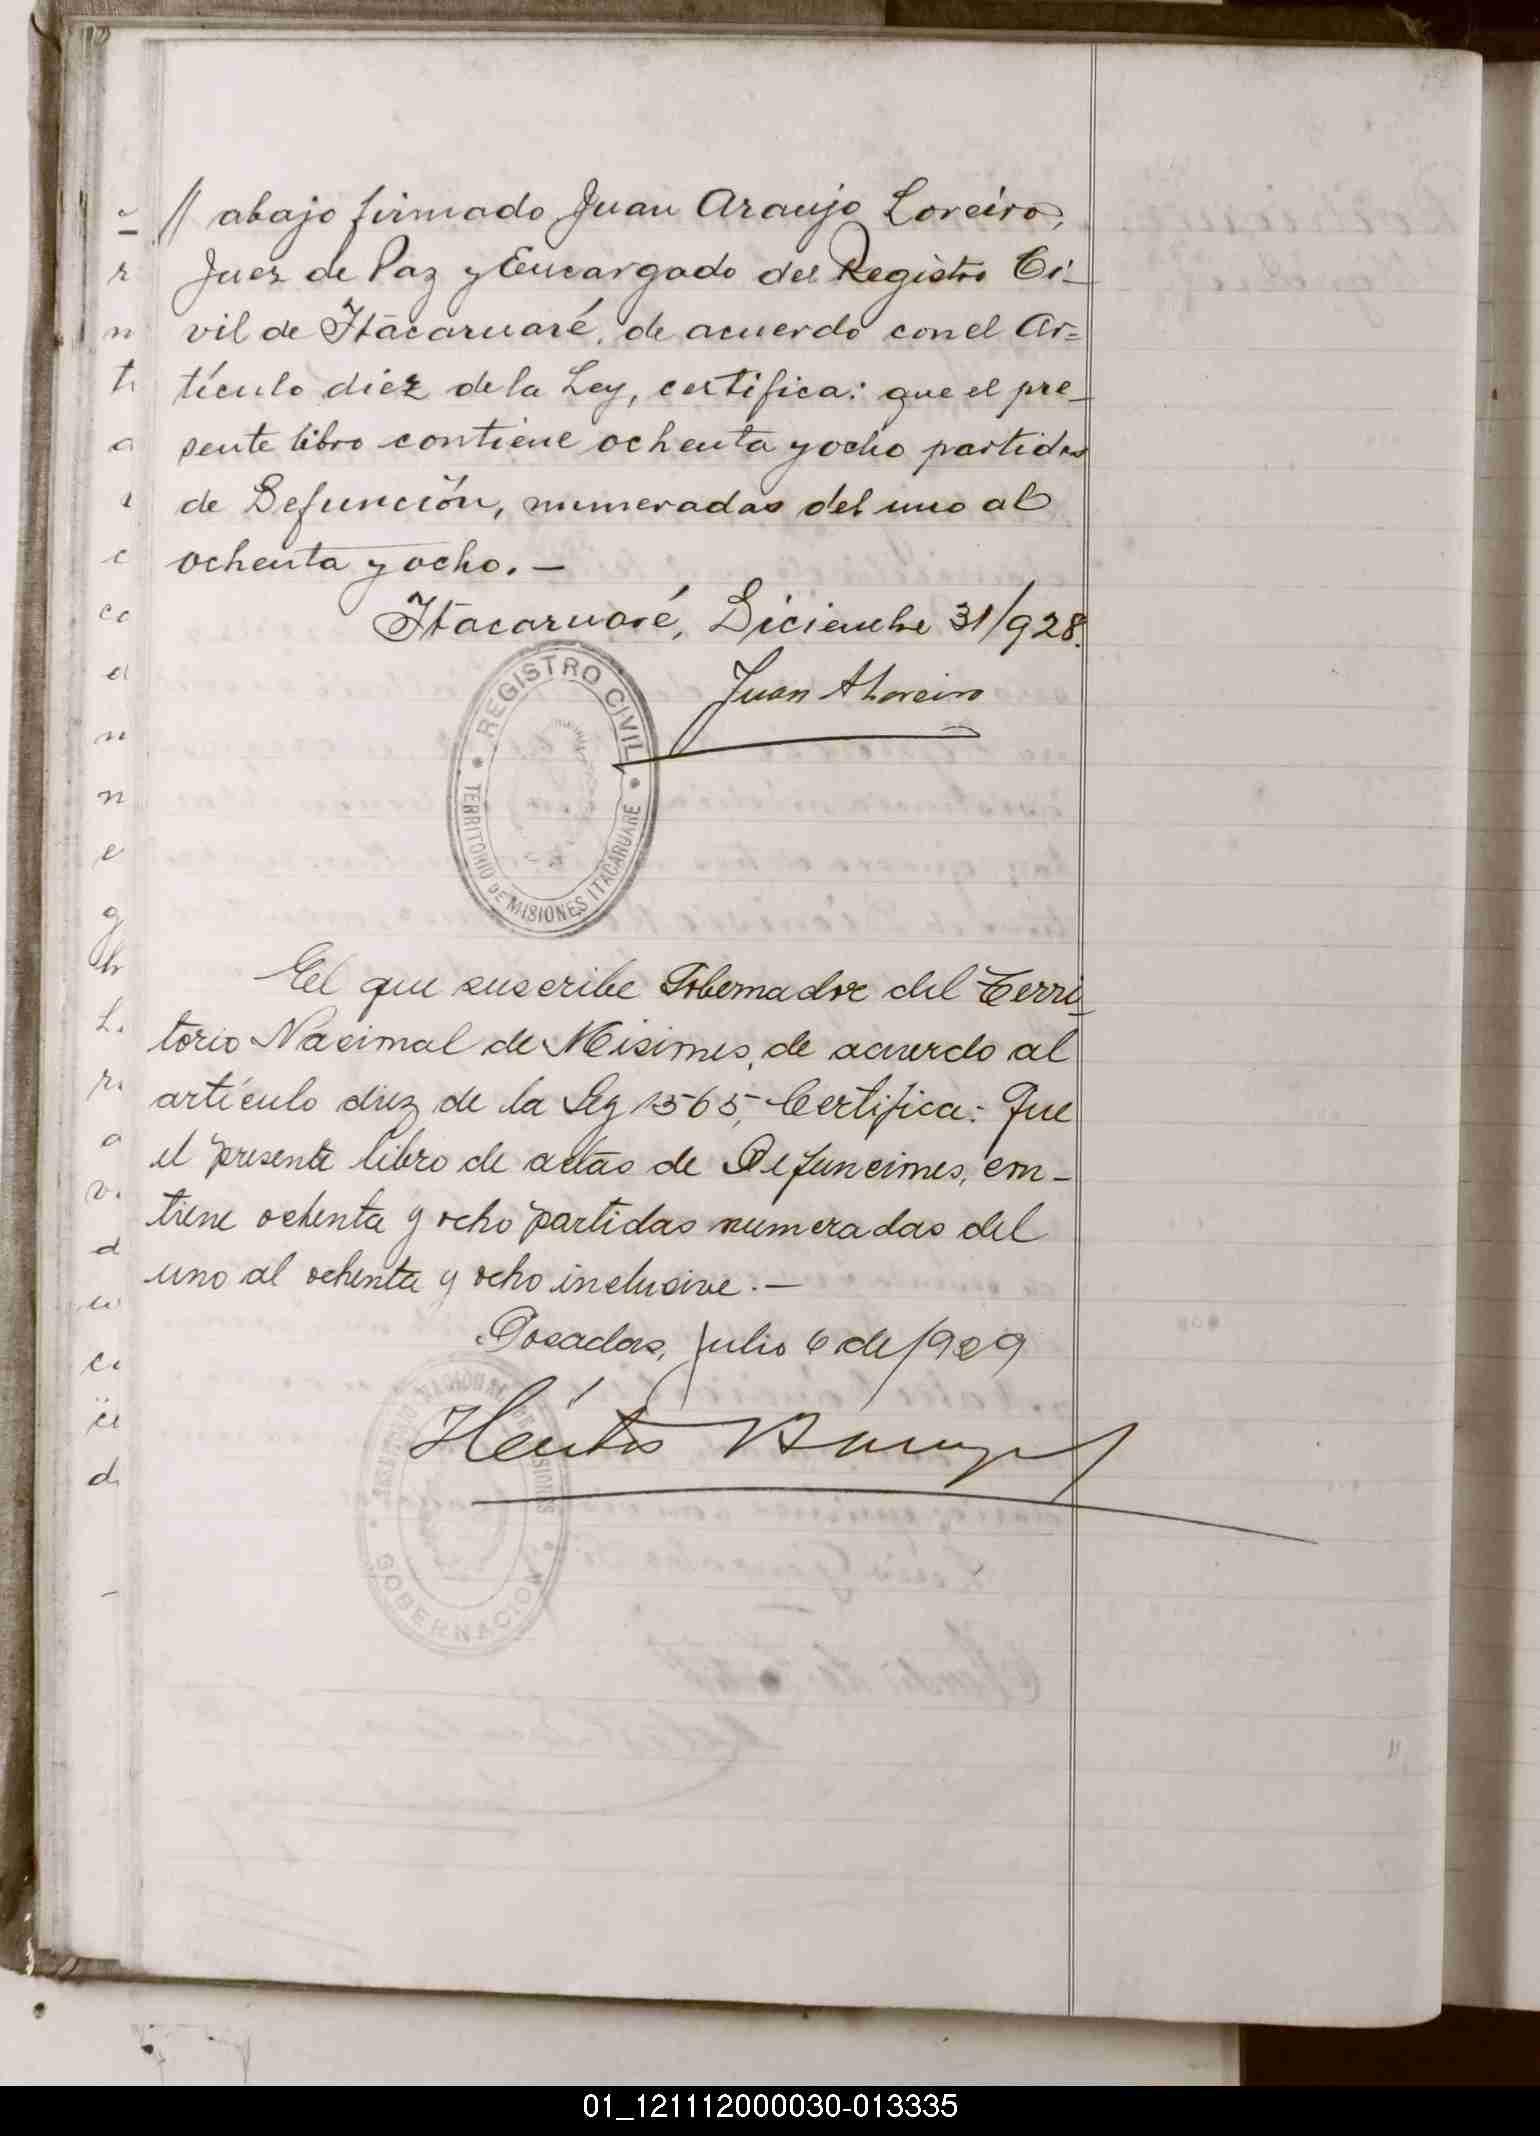 // abajo firmado Juan Araujo Loreiro,
Juez de Paz y Encargado del Registro Ci-
vil de Itacaruaré, de acuerdo con el Ar=
tículo diez de la Ley, certifica: que el pre-
sente libro contiene ochenta y ocho partidas
de Defunción, numeradas del uno al
ochenta y ocho. —
Itacaruaré, Diciembre 31/928.
Juan A Loreiro
REGISTRO CIVIL
TERRITORIO DE MISIONES ITACARUARE
El que suscribe Gobernador del Terri-
torio Nacional de Misiones, de acuerdo al
artículo diez de la Ley 1565, Certifica: Que
el presente libro de actas de Defunciones, con-
tiene ochenta y ocho partidas numeradas del
uno al ochenta y ocho inclusive. —
Posadas, Julio 6 de 1929
GOBERNACION
01_121112000030-013335